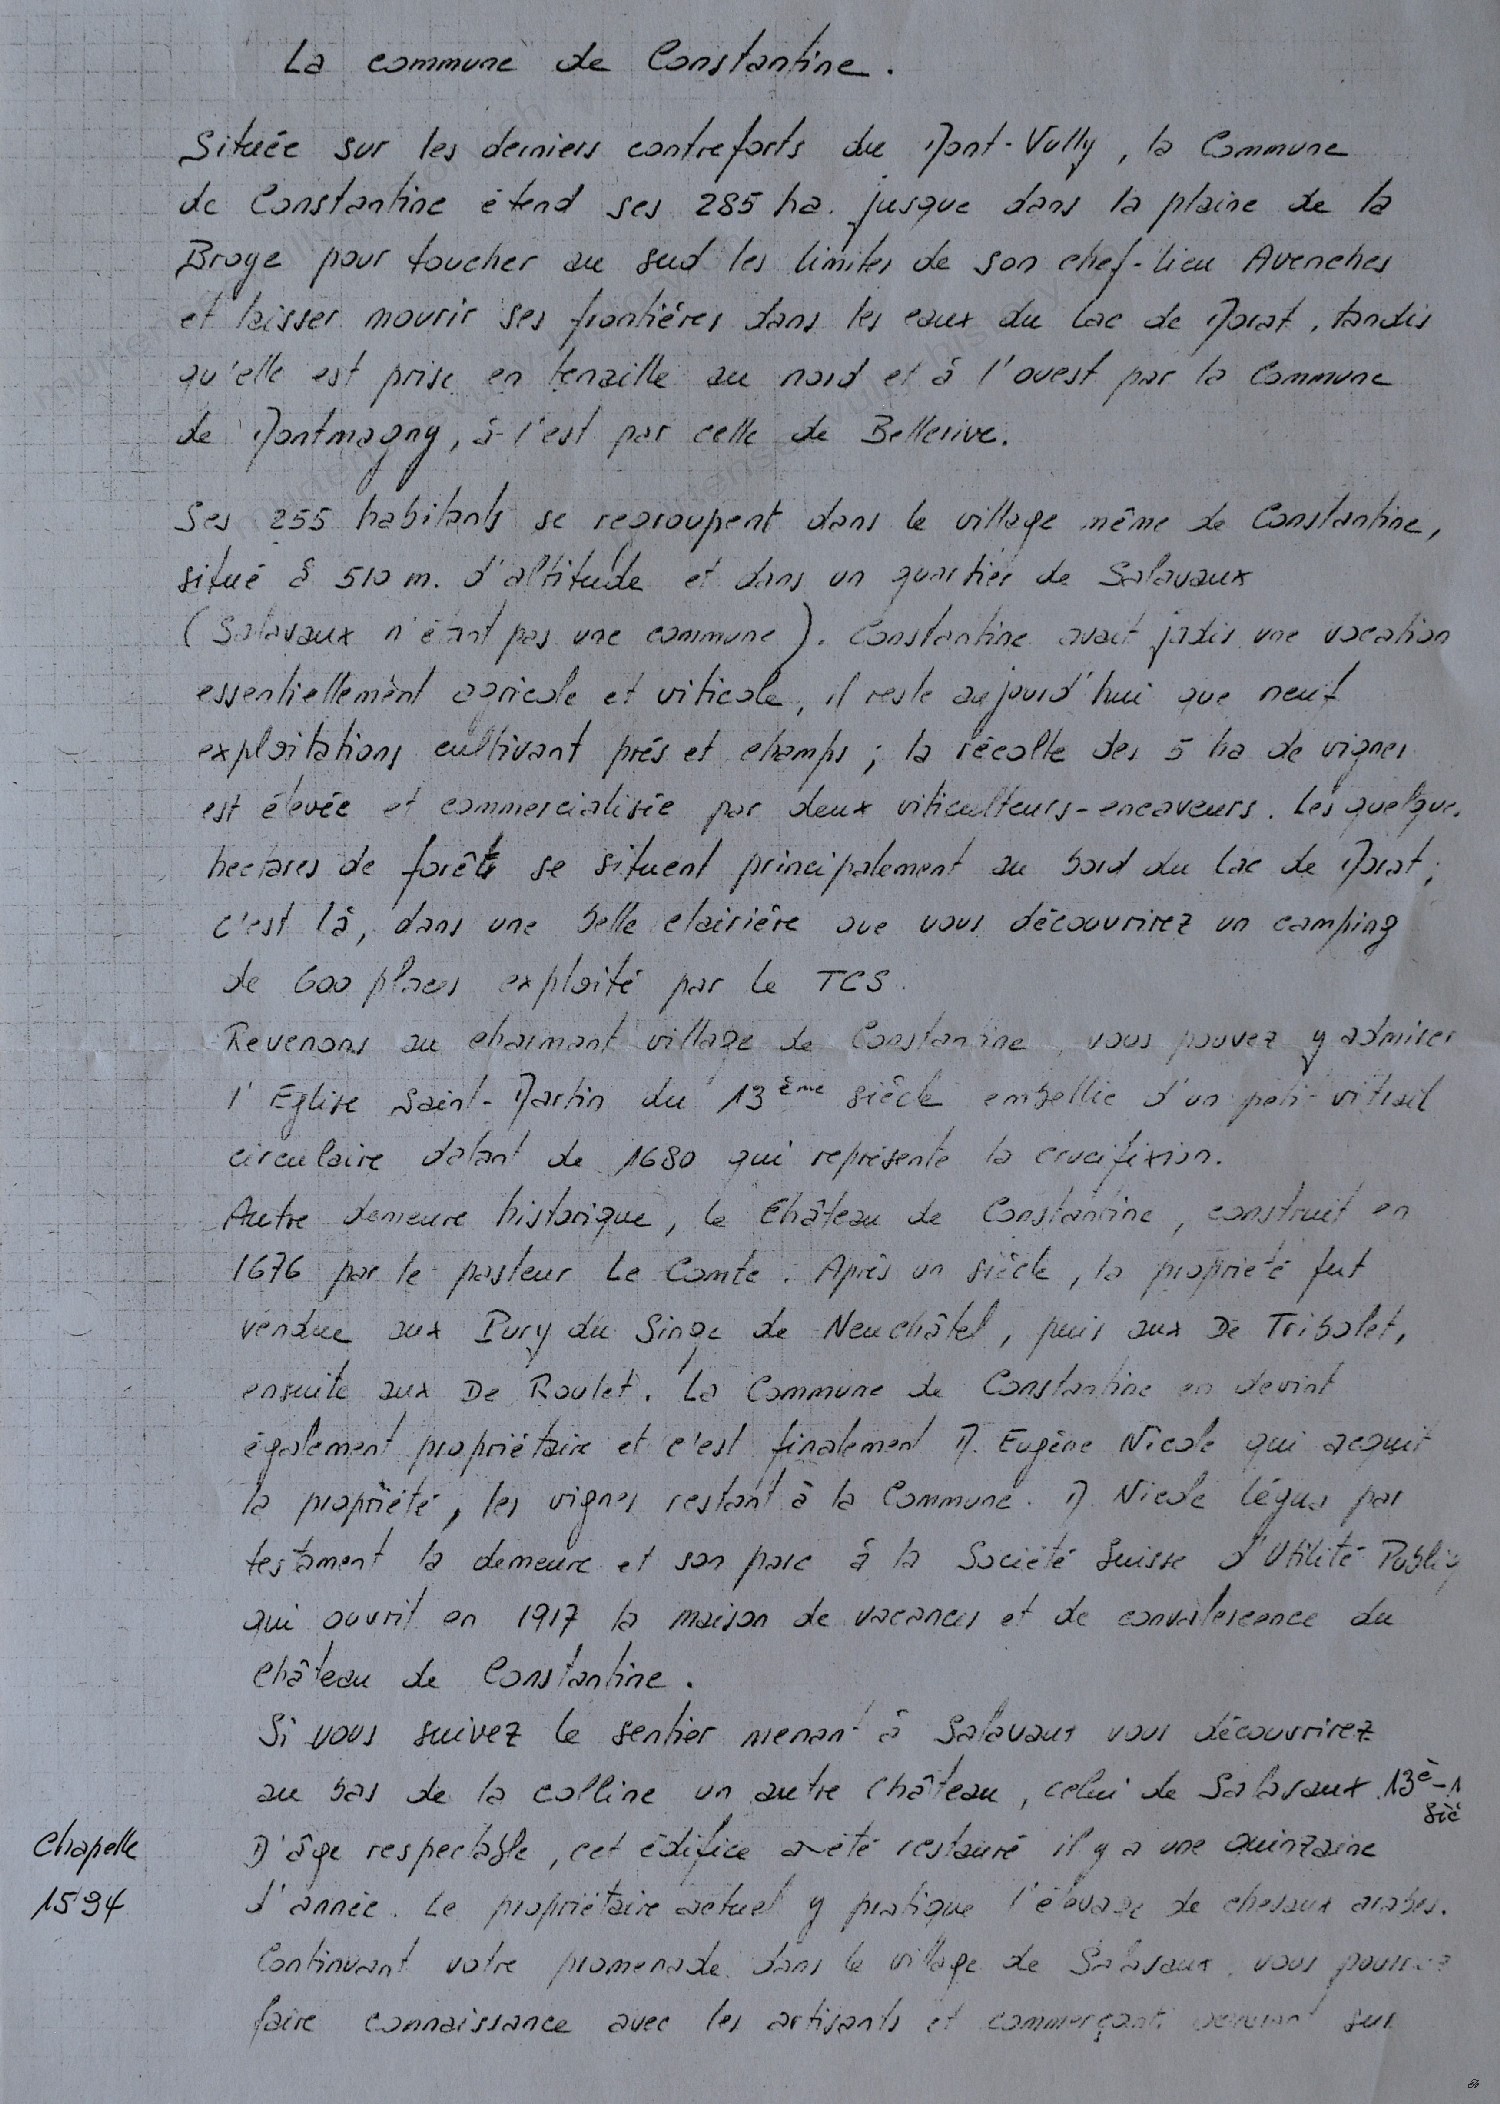 La commune de Constantine.
Située sur les derniers contreforts du Mont-Vully, la Commune
de Constantine étend ses 285 ha. jusque dans la plaine de la
Broye pour toucher au sud les limites de son chef-lieu Avenches
et laisser mourir ses frontières dans les eaux du lac de Morat, tandis
qu'elle est prise en tenaille au nord et à l'ouest par la Commune
de Montmagny, à l'est par celle de Bellerive.
Ses 255 habitants se regroupent dans le village même de Constantine,
situé à 510 m. d'altitude et dans un quartier de Salavaux
(Salavaux n'étant pas une commune). Constantine avait jadis une vocation
essentiellement agricole et viticole, il reste aujourd'hui que neuf
exploitations cultivant prés et champs; la récolte des 5 ha de vignes
est élevée et commercialisée par deux viticulteurs-encaveurs. Les quelque
hectares de forêts se situent principalement au bord du lac de Morat;
c'est là, dans une belle clairière que vous découvrirez un camping
de 600 places exploité par le TCS.
Revenons au charmant village de Constantine, vous pouvez y admirer
l'Eglise Saint-Martin du 13ème siècle embellie d'un petit vitrail
circulaire datant de 1680 qui représente la crucifixion.
Autre demeure historique, le Château de Constantine, construit en
1676 par le pasteur Le Comte. Après un siècle, la propriété fut
vendue aux Pury du Singe de Neuchâtel, puis aux De Tribolet,
ensuite aux De Roulet. La Commune de Constantine en devint
également propriétaire et c'est finalement M. Eugène Nicole qui acquit
la propriété, les vignes restant à la Commune. M. Nicole légua par
testament la demeure et son parc à la Société Suisse d'Utilité Publiq
qui ouvrit en 1917 la maison de vacances et de convalescence du
Château de Constantine.
Si vous suivez le sentier menant à Salavaux vous découvrirez
au bas de la colline un autre château, celui de Salavaux 13è-1
siè
Chapelle
1594
D'âge respectable, cet édifice a été restauré il y a une quinzaine
d'année. Le propriétaire actuel y pratique l'élevage de chevaux arabes.
Continuant votre promenade dans le village de Salavaux, vous pourrez
faire connaissance avec les artisants et commerçants sur